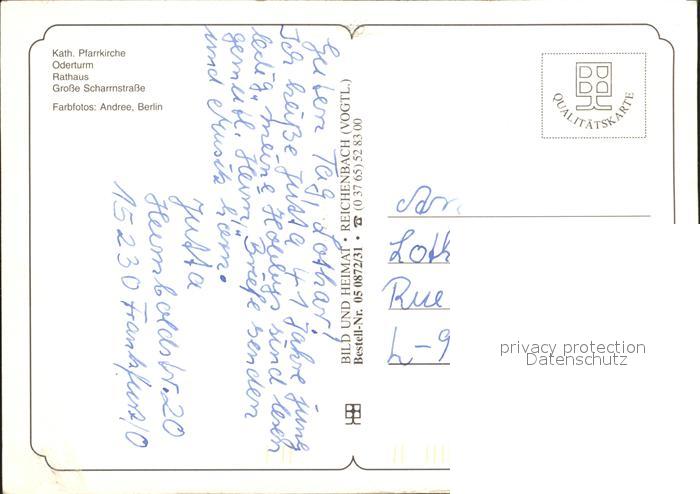 Kath. Pfarrkirche
Oderturm
Rathaus
Große Scharrnstraße
Farbfotos: Andree, Berlin
Guten Tag, Lothar!
Ich heiße Jutta 41 Jahre jung
ledig, meine Hobbys sind lesen
gemütl. Heim, Briefe senden
und Musik hören.
Jutta
Humboldstr. 20
15230 Frankfurt/O
BILD UND HEIMAT • REICHENBACH (VOGTL.)
Bestell-Nr. 05 0872/31 • ☎ (0 37 65) 52 83 00
QUALITÄTSKARTE
An
Loth
Rue
L-9
privacy protection
Datenschutz